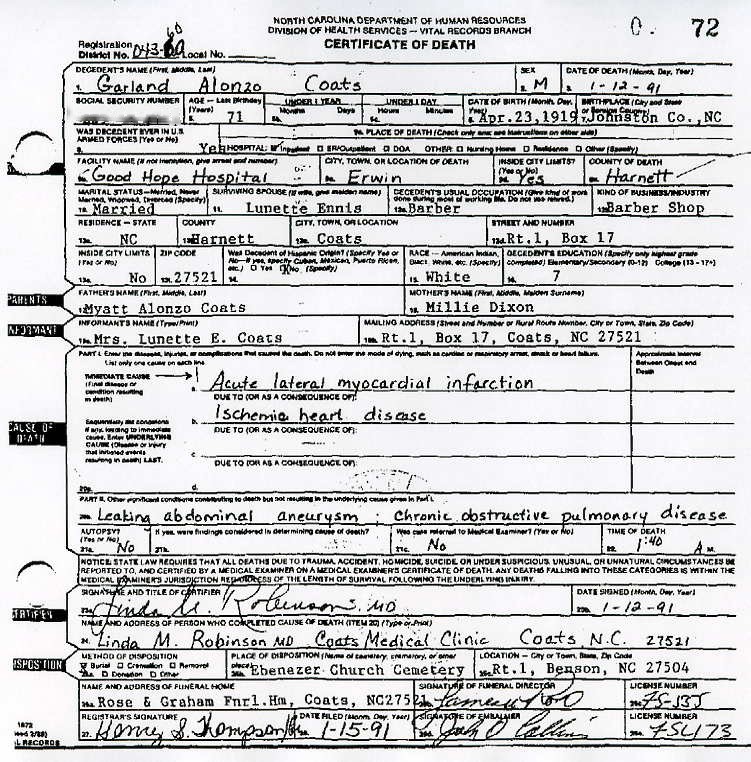 NORTH CAROLINA DEPARTMENT OF HUMAN RESOURCES
DIVISION OF HEALTH SERVICES — VITAL RECORDS BRANCH
CERTIFICATE OF DEATH
72
Registration District No. 043- 60 Local No.
DECEDENT'S NAME (First, Middle, Last) SEX DATE OF DEATH (Month, Day, Year)
1. Garland Alonzo Coats M 1-12-91
SOCIAL SECURITY NUMBER AGE — Last Birthday (Years) UNDER 1 YEAR UNDER 1 DAY DATE OF BIRTH (Month, Day, Year) BIRTHPLACE (City and State or Foreign Country)
71 Months Days Hours Minutes Apr.23,1919 Johnston Co.,NC
WAS DECEDENT EVER IN U.S. ARMED FORCES? (Yes or No) 9a. PLACE OF DEATH (Check only one: see instructions on other side)
Yes HOSPITAL: Inpatient ER/Outpatient DOA OTHER: Nursing Home Residence Other (Specify)
FACILITY NAME (If not institution, give street and number) CITY, TOWN, OR LOCATION OF DEATH INSIDE CITY LIMITS? (Yes or No) COUNTY OF DEATH
Good Hope Hospital Erwin Yes Harnett
MARITAL STATUS—Married, Never Married, Widowed, Divorced (Specify) SURVIVING SPOUSE (If wife, give maiden name) DECEDENT'S USUAL OCCUPATION (Give kind of work done during most of working life. Do not use retired.) KIND OF BUSINESS/INDUSTRY
10. Married 11. Lunette Ennis Barber Barber Shop
RESIDENCE — STATE COUNTY CITY, TOWN, OR LOCATION STREET AND NUMBER
13a. NC Harnett 13c. Coats Rt.1, Box 17
INSIDE CITY LIMITS (Yes or No) ZIP CODE Was Decedent of Hispanic Origin? (Specify Yes or No—If yes, specify Cuban, Mexican, Puerto Rican, etc.) Yes No (Specify) RACE — American Indian, Black, White, etc. (Specify) DECEDENT'S EDUCATION (Specify only highest grade completed) Elementary/Secondary (0-12) College (13 - 17+)
No 27521 14. 15. White 16. 7
PARENTS
FATHER'S NAME (First, Middle, Last) MOTHER'S NAME (First, Middle, Maiden Surname)
Myatt Alonzo Coats Millie Dixon
INFORMANT
INFORMANT'S NAME (Type/Print) MAILING ADDRESS (Street and Number or Rural Route Number, City or Town, State, Zip Code)
Mrs. Lunette E. Coats Rt.1, Box 17, Coats, NC 27521
PART I. Enter the diseases, injuries, or complications that caused the death. Do not enter the mode of dying, such as cardiac or respiratory arrest, shock or heart failure.
List only one cause on each line. Approximate Interval Between Onset and Death
IMMEDIATE CAUSE (Final disease or condition resulting in death)
a. Acute lateral myocardial infarction
DUE TO (OR AS A CONSEQUENCE OF):
b. Ischemic heart disease
CAUSE OF DEATH
Sequentially list conditions if any, leading to immediate cause. Enter UNDERLYING CAUSE (Disease or injury that initiated events resulting in death) LAST.
DUE TO (OR AS A CONSEQUENCE OF):
c.
DUE TO (OR AS A CONSEQUENCE OF):
d.
PART II. Other significant conditions contributing to death but not resulting in the underlying cause given in Part I.
Leaking abdominal aneurysm ; chronic obstructive pulmonary disease
AUTOPSY? (Yes or No) If yes, were findings considered in determining cause of death? Was case referred to Medical Examiner? (Yes or No) TIME OF DEATH
21a. No 21b. 21c. No 22. 1:40 A M.
NOTICE: STATE LAW REQUIRES THAT ALL DEATHS DUE TO TRAUMA, ACCIDENT, HOMICIDE, SUICIDE, OR UNDER SUSPICIOUS, UNUSUAL, OR UNNATURAL CIRCUMSTANCES BE
REPORTED TO, AND CERTIFIED BY A MEDICAL EXAMINER ON A MEDICAL EXAMINER'S CERTIFICATE OF DEATH. ANY DEATHS FALLING INTO THESE CATEGORIES IS WITHIN THE
MEDICAL EXAMINER'S JURISDICTION REGARDLESS OF THE LENGTH OF SURVIVAL FOLLOWING THE UNDERLYING INJURY.
CERTIFIER
SIGNATURE AND TITLE OF CERTIFIER DATE SIGNED
Linda M. Robinson MD 1-12-91
NAME AND ADDRESS OF PERSON WHO COMPLETED CAUSE OF DEATH (ITEM 20) (Type or Print)
24. Linda M. Robinson MD Coats Medical Clinic Coats, N.C. 27521
DISPOSITION
METHOD OF DISPOSITION PLACE OF DISPOSITION (Name of cemetery, crematory, or other place) LOCATION — City or Town, State, Zip Code
Burial Cremation Removal Donation Other Ebenezer Church Cemetery Rt.1, Benson, NC 27504
NAME AND ADDRESS OF FUNERAL HOME SIGNATURE OF FUNERAL DIRECTOR LICENSE NUMBER
Rose & Graham Fnrl.Hm, Coats, NC2752
REGISTRAR'S SIGNATURE DATE FILED (Month, Day, Year) SIGNATURE OF EMBALMER LICENSE NUMBER
27. Henry S. Thompson 1-15-91
1872
L RECORDS